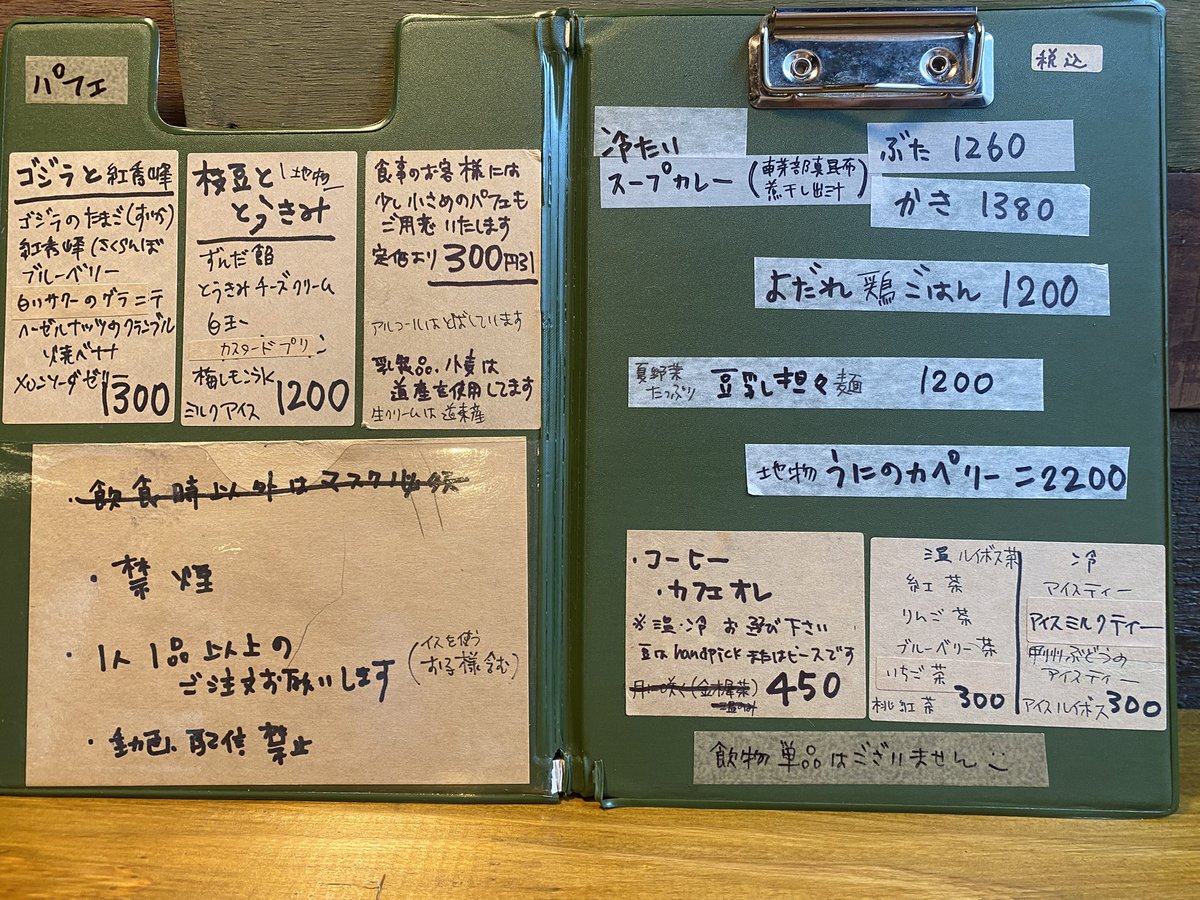 パフェ
ゴジラと紅秀峰
ゴジラのたまご(すいか)
紅秀峰(さくらんぼ
ブルーベリー
白いサワーのグラニテ
ヘーゼルナッツのクランブル
火焼バナナ
メロンソーダゼリー
1300
枝豆と 地物
とうきみ
ずんだ餡
とうきみチーズクリーム
白玉
カスタードプリン
梅レモンうK
ミルクアイス 1200
食事のお客様には
少し小さめのパフェも
ご用意いたします
定価より 300円引
アルコールはとばしています
乳製品、小麦は
道産を使用してます
生クリームは道東産
・飲食時以外はマスク必須
・禁煙
・1人1品以上の
ご注文お願いします
(イスを使う
お子様含む)
・動画、配信 禁止
税込
冷たい
スープカレー
煮干し出汁)
ぶた 1260
かき 1380
よだれ鶏ごはん 1200
夏野菜
たっぷり
豆乳担々麺 1200
地物 うにのカペリーニ2200
・コーヒー
・カフェオレ
※温・冷 お選び下さい
豆は handpick またはピースです
月に咲く(金木犀茶)
450
温 ルイボス茶
紅茶
りんご茶
ブルーベリー茶
いちご茶
桃紅茶 300
冷
アイスティー
アイスミルクティー
甲州ぶどうの
アイスティー
アイスルイボス 300
飲物単品はございません